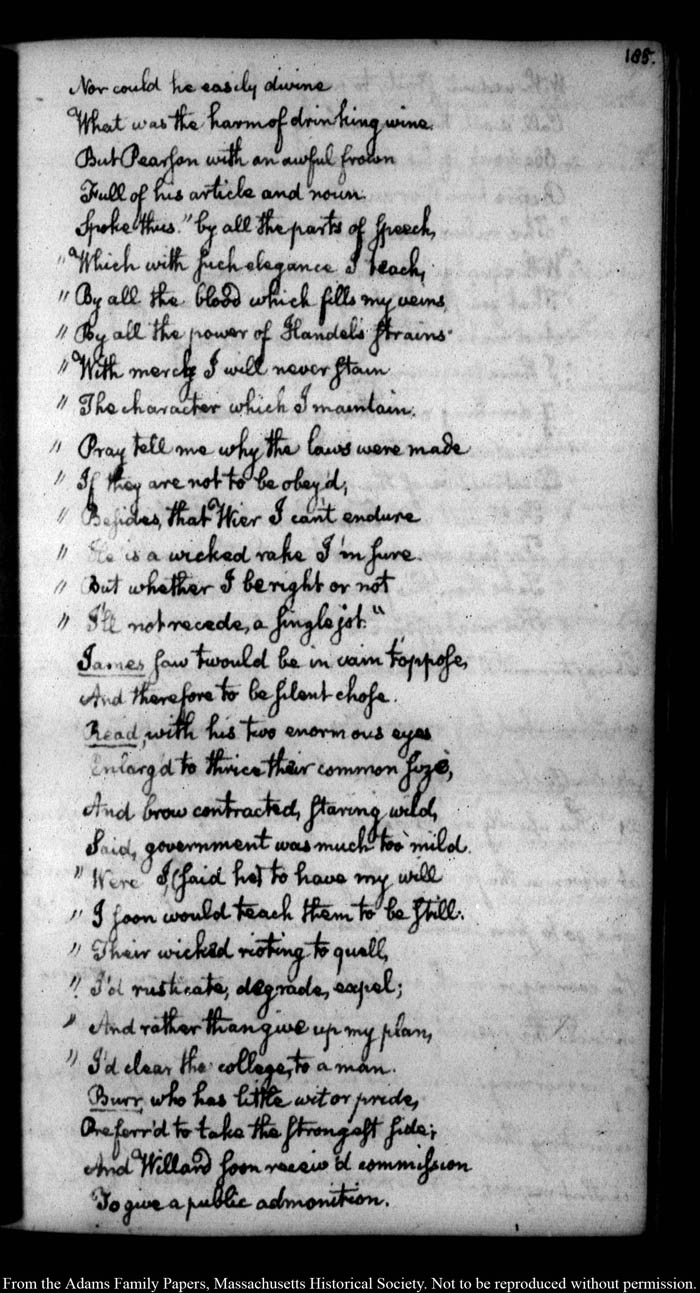 185.
Nor could he easily divine
What was the harm of drinking wine.
But Pearson with an awful frown
Full of his article and noun.
Spoke thus. "by all the parts of speech,
" Which with such elegance I teach,
" By all the blood which fills my veins
" By all the power of Handel's strains
" With mercy I will never stain
" The character which I maintain.
" Pray tell me why the laws were made
" If they are not to be obey'd;
" Besides, that Wier I can't endure
" He is a wicked rake I'm sure.
" But whether I be right or not
" I'll not recede, a single jot."
James saw 'twould be in vain t'oppose,
And therefore to be silent chose.
Read, with his two enormous eyes
Enlarg'd to thrice their common size,
And brow contracted, staring wild,
Said, government was much too mild.
" Were I (said he) to have my will
" I soon would teach them to be still.
" Their wicked rioting to quell,
" I'd rusticate, degrade, expel;
" And rather than give up my plan,
" I'd clear the college, to a man.
Burr, who has little wit or pride,
Preferr'd to take the strongest side;
And Willard soon receiv'd commission
To give a public admonition.
From the Adams Family Papers, Massachusetts Historical Society. Not to be reproduced without permission.